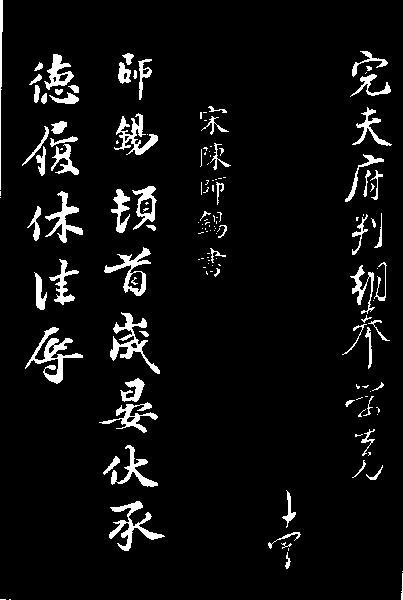 完夫府判朝奉
宋陳師錫書
師錫頓首歲晏伏承
德履休佳辱